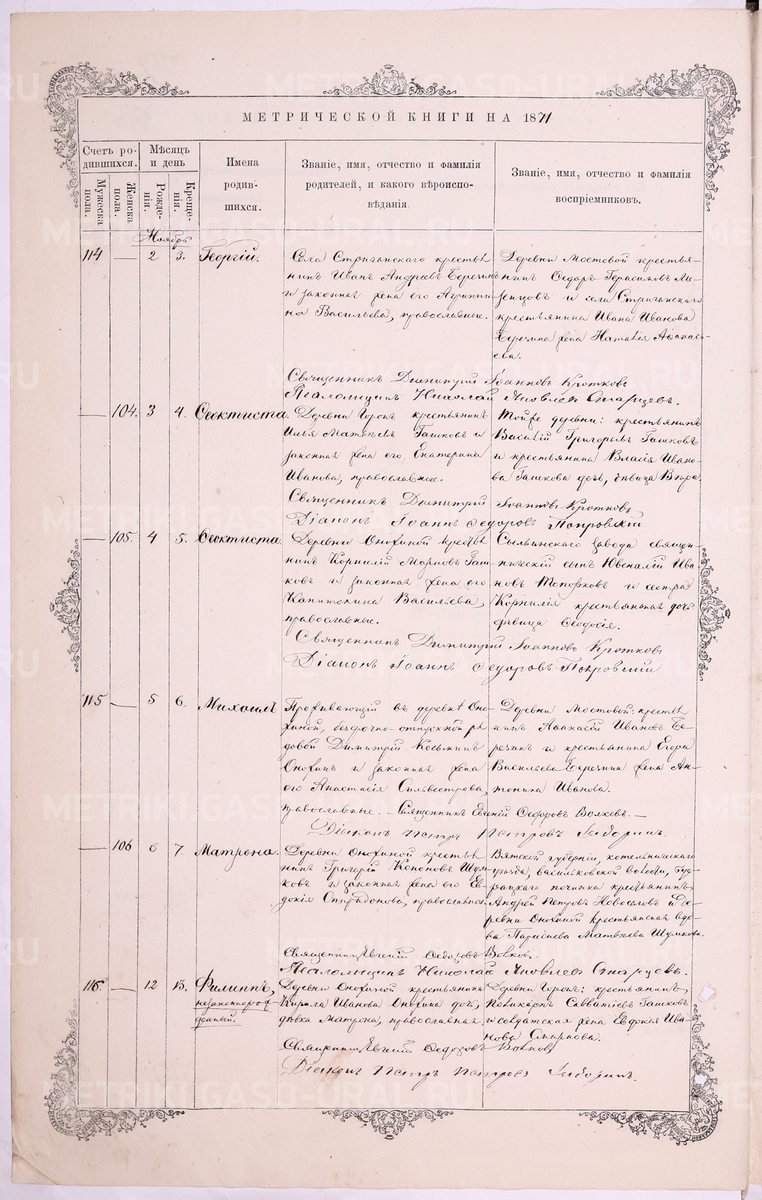 МЕТРИЧЕСКОЙ КНИГИ НА 1871
Счетъ ро-
дившихся.
Мужеска
пола.
Женска
пола.
Мѣсяцъ
и день
Рожде-
нія.
Креще-
нія.
Имена
родив-
шихся.
Званіе, имя, отчество и фамилія
родителей, и какого вѣроиспо-
вѣданія.
Званіе, имя, отчество и фамилія
воспріемниковъ.
Ноябрь
114 — 2 3. Георгій.
Села Стриганскаго крестья
нинъ Иванъ Андреевъ Берсеневъ
и законная жена его Агриппи
на Васильева, православные.
Деревни Мостовой крестья-
нинъ Ѳедоръ Герасимовъ Ме-
зенцовъ и села Стриганскаго
крестьянина Ивана Иванова
жена Наталія Аѳанась-
ева.
Священникъ Димитрій Іоанновъ Кротковъ
Псаломщикъ Николай Яковлевъ Старцевъ.
— 104. 3 4. Ѳеоктиста.
Деревни крестьянинъ
Илья Матвѣевъ Гашковъ и
законная жена его Екатерина
Иванова, православные.
Той же деревни: крестьянинъ
Василій Григорьевъ Гашковъ
и крестьянина Власія Ивано-
ва Гашкова дочь, дѣвица Вѣра.
Священникъ Димитрій Іоанновъ Кротковъ
Діаконъ Іоаннъ Ѳедоровъ Покровскій
— 105. 4 5. Ѳеоктиста
Деревни Онохиной крестья
нинъ Корнилій Марковъ Гаш-
ковъ и законная жена его
Капитолина Васильева,
православные.
Сылвинскаго завода священ-
ническій сынъ Ювеналій Ива
новъ Топорковъ и сестра
Корнилія крестьянская дочь
дѣвица Ѳеодосія.
Священникъ Димитрій Іоанновъ Кротковъ
Діаконъ Іоаннъ Ѳедоровъ Покровскій
115 — 5 6. Михаилъ
Проживающій въ деревнѣ Оно-
хиной, безсрочно-отпускной ря
довой Димитрій Космиинъ
Онохинъ и законная жена
его Анастасія Сильвестрова,
православные.
Деревни Мостовой: крестья
нинъ Аѳанасій Ивановъ Бе-
и крестьянина Егора
Васильева жена Ан-
тонина Иванова.
Священникъ Евгеній Ѳедоровъ Волковъ. —
Діаконъ Петръ Петровъ Заборинъ.
— 106 6 7. Матрона.
Деревни Онохиной крестья
нинъ Григорій Кононовъ Шум
ковъ и законная жена его Ев-
докія Спиридонова, православные.
Вятской губерніи, котельническаго
уѣзда, васильковской волости,
починка крестьянинъ
Андрей Петровъ Новоселовъ и де-
ревни Онохиной крестьянская вдо-
ва Параскева Матвѣева Шумкова.
Священникъ Евгеній Ѳедоровъ Волковъ.
Псаломщикъ Николай Яковлевъ Старцевъ.
116 — 12 13. Филиппъ,
незаконнорож
денный.
Деревни Онохиной крестьянина
Кирила Иванова Онохина дочь,
дѣвка Матрона, православная
Деревни крестьянинъ
Поликарпъ Савватіевъ Гашковъ
и солдатская жена Евдокія Ива
нова Смирнова.
Священникъ Евгеній Ѳедоровъ Волковъ
Діаконъ Петръ Петровъ Заборинъ.